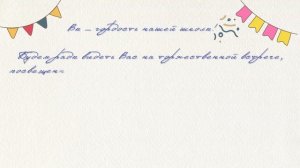 Вы – гордость нашей школы
Будем рады видеть Вас на торжественной встрече,
посвещен